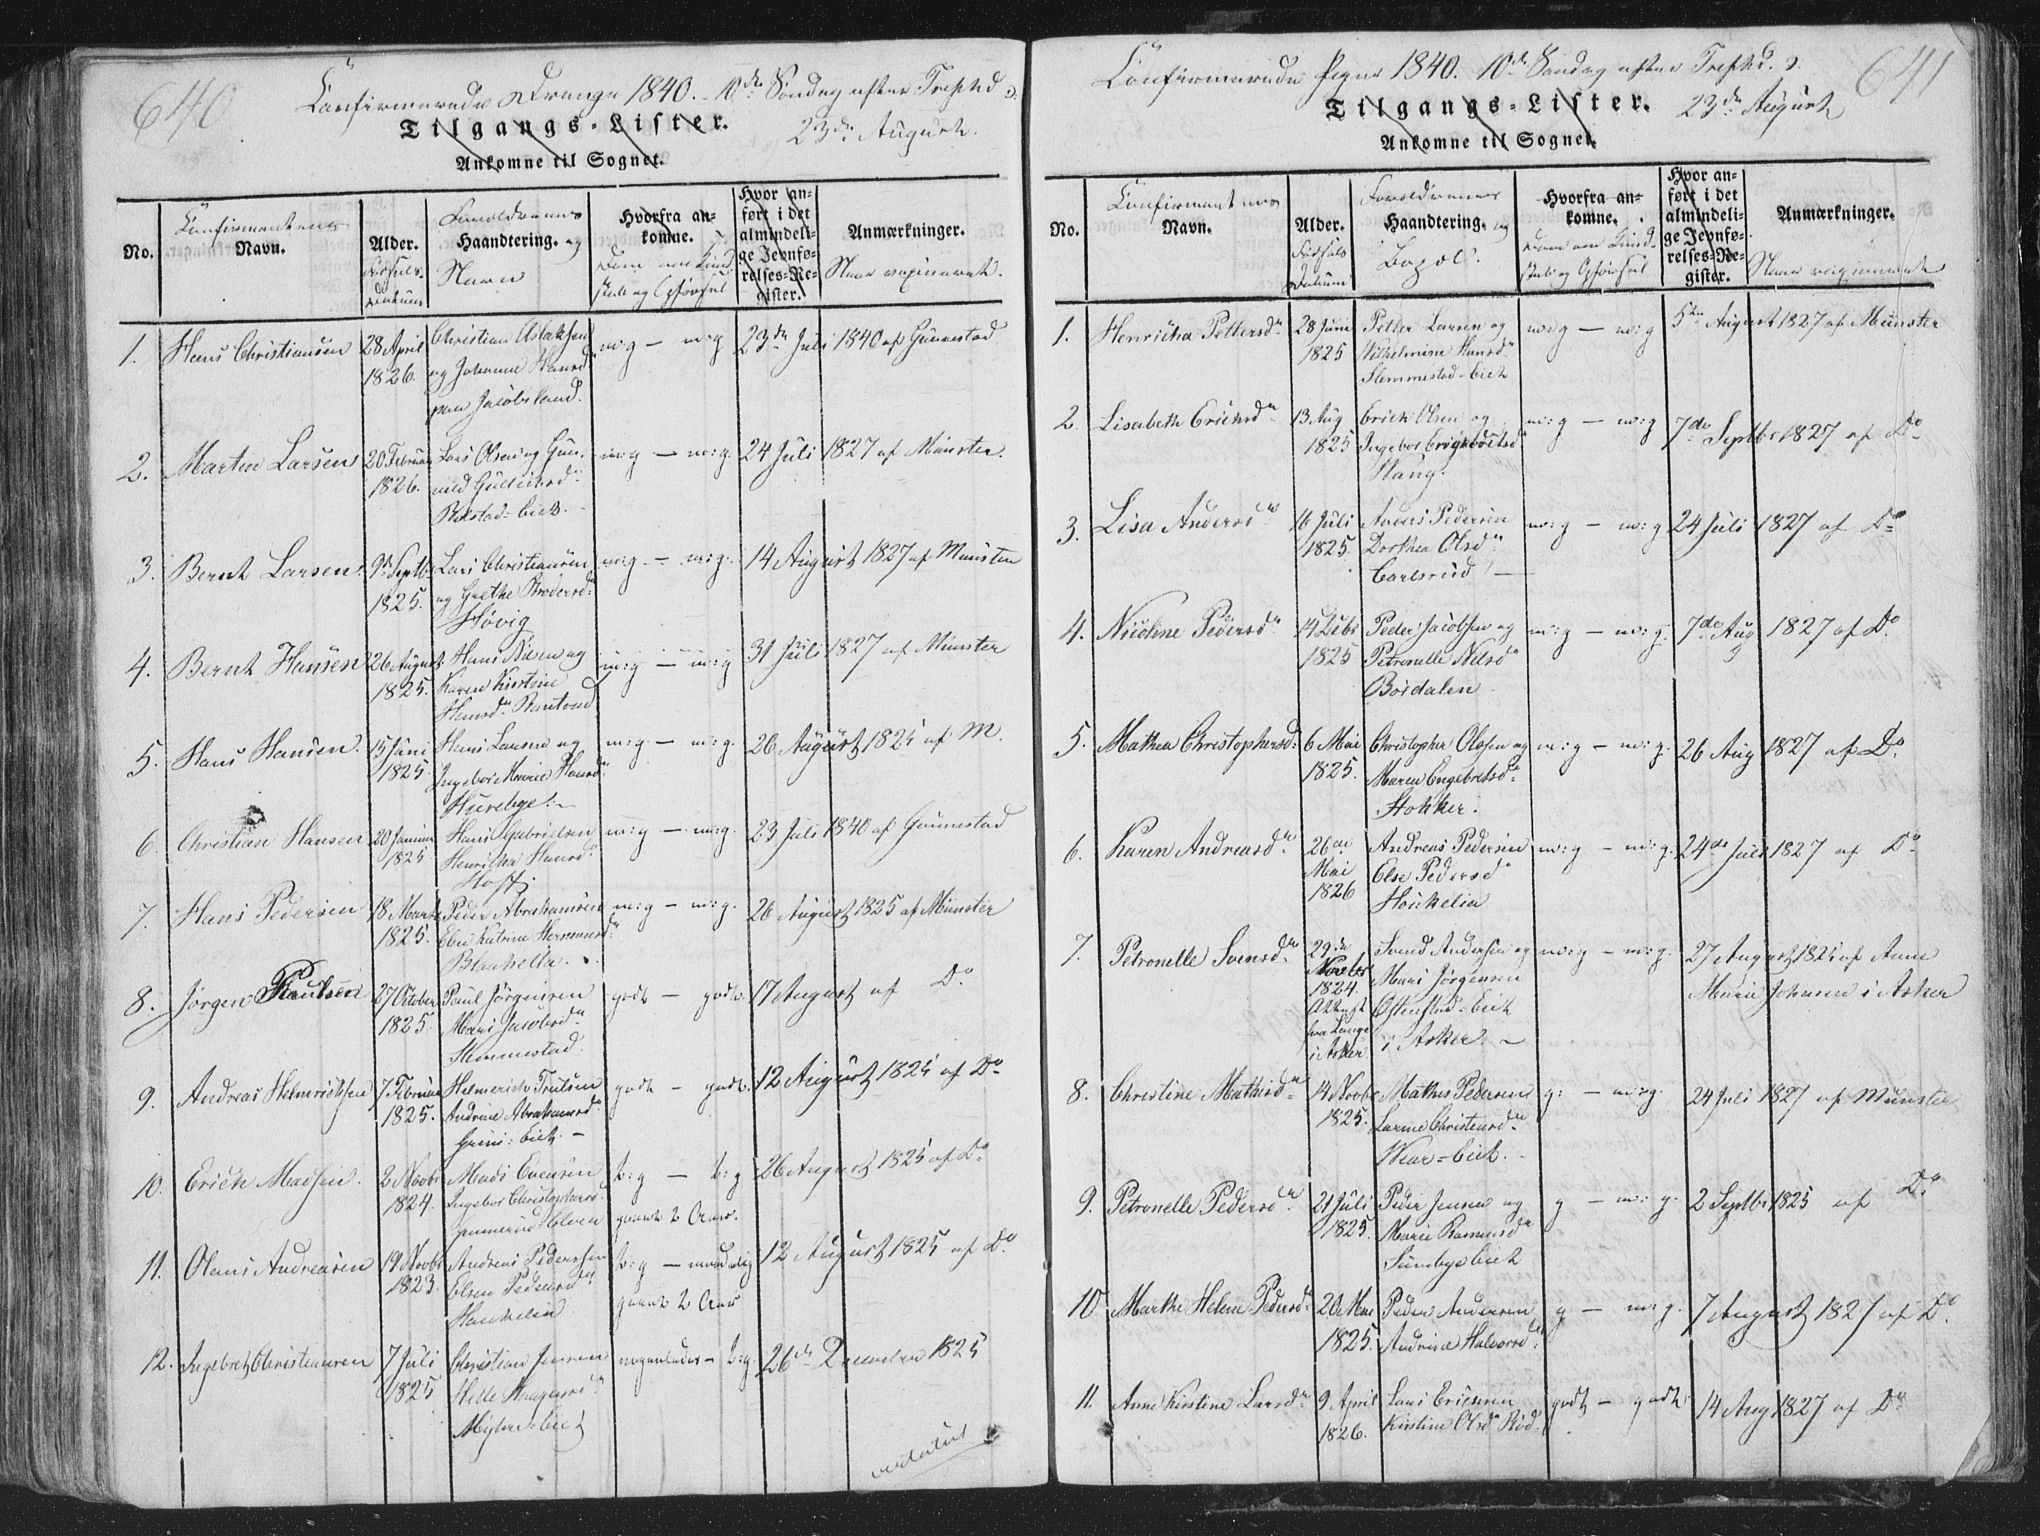 640
Confirmerede Drenge 1840. 10de Søndag efter Trefhd:
Tilgangs-Lister.
23de August.
Ankomne til Sognet.
No.
Confirmantens
Navn.
Alder.
Fødsels-
Datum
Forældrenes
Haandtering. og
Navn
Hvorfra an-
komne.
Dom om Kund
skab og Opførsel
Hvor an-
ført i det
almindeli-
ge Jevnfø-
relses-Re-
gister.
Anmærkninger.
Naar vaccineret.
1. Hans Christiansen 28 April Christian Aslaksen m:g – m:g 23de Juli 1840 af Gunnestad
1826. og Johanne Hansd
paa Jacobsland.
2. Martin Larsen 20 Februar Lars Olsen og Gun- m:g – m:g. 24 Juli 1827 af Münster.
1826. nild Gulliksd
eiet.
3. Bernt Larsen. 9de Septbr Lars Christiansen m:g – m:g. 14 August 1827 af Münster
1825. og Grethe
Høvig
4. Bernt Hansen 26 August Hans Nilsen og m:g – m:g 31 Juli 1827 af Münster
1825. Karen Kirstine
Hansd
5. Hans Hansen. 15 Juni Hans Larsen og m:g – m:g. 26 August 1825 af M.
1825. Ingebor Marie Hansd
6. Christian Hansen 20 Januar Hans Gabrielsen m:g – m:g. 23 Juli 1840 af Gunnestad
1825 Henricha Hansd
7. Hans Pedersen 18 Marts Peder Abrahamsen m:g – m:g. 26 August 1825 af Münster
1825. Else Katrine Hermansd
8. Jørgen Paulsen 27 October Paul Jørgensen godt – godt. 17 August af Do
1825. Mari Jacobsd
Slemmestad.
9. Andreas Helmerichsen 7 Februar Helmerich Truelsen godt – godt. 12 August 1825 af Do
1825. Andrine Abrahamsd
Grini-Eiet. –
10. Erich Madsen. 2 Novbr Mads Evensen t:g – t:g 26 August 1825 af Do
1824. Ingebor Christophersd
gaaet 2 Aar.
11. Olaus Andreasen 19 Novbr Andreas Pederssen t:g – maadelig 12 August 1825 af Do
1823. Elsen Pedersd
gaaet 2 Aar
12. Ingebret Christiansen 7 Juli Christian Jensen nogenledes – t:g. 26de December 1825
1825. Helle
eiet
641
Confirmerede Piger 1840. 10de Søndag efter Trefhd.
Tilgangs-Lister. 23de August
Ankomne til Sognet.
No.
Confirmantens
Navn.
Alder.
Fødsels
Datum
Forældrenes
Haandtering. og
Bopæl.
Hvorfra an-
komne.
Dom om Kund-
skab og Opførsel
Hvor an-
ført i det
almindeli-
ge Jevnfø-
relses-Re-
gister.
Anmærkninger.
Naar vaccinerede
1. Henricha Pettersd 28 Juni Petter Larsen og m:g – m:g 5te August 1827 af Münster
1825 Wilhelmine Hansd
Slemmestad-Eiet
2. Lisabeth Erichsd 13 Aug Erich Olsen og m:g – m:g 7de Septbr 1827 af Do
1825 Ingebor Engebretsd
Hang.
3. Lisa Andersd 16 Juli Anders Pedersen m:g – m:g 24 Juli 1827 af Do
1825. Dorthea Olsd
Carlsrud –
4. Nicoline Pedersd 14 Debr Peder Jacobsen og m:g – m:g. 7de Aug 1827 af Do
1825 Petronelle Nilsd
Bordalen
5. Mathea Christophersd: 6 Mai Christopher Olssen og m:g – m:g. 26 Aug 1827 af Do
1825. Maren Engebretsd
Stokker.
6. Karen Andreasd 26de Andreas Pedersen m:g – m:g. 24de Juli 1827 af Do
Mai Else Pedersd
1826
7. Petronelle Svensd 29de Svend Andersen og m:g – m:g. 27 August 1825 af Anne
Novbr Mari Jørgensen Marie Johnsen i Asker
1824. Østenstad-Eiet
Attest
fra Lange
i Asker i Asker. –
8. Christine Mathisd 14 Novbr Mathis Pedersen g: – m:g. 24 Juli 1827 af Münster
1825. Christensd
Wear-Eiet.
9. Petronelle Pedersd 21 Juli Peder Jensen og g – m:g. 2 Septbr 1825 af Do
1825. Marie Rasmusd
Sundbye Eiet
10 Marthe Helene Pedersd 26 Mai Peder Andersen g – m:g. 7 August 1827 af Do
1825. Andrine Halvorsd:
11. Anne Kirstine Larsd 9 April Lars Ericksen godt – godt 14 Aug 1827 af Do
1826. Kirstine Olsd Rød.